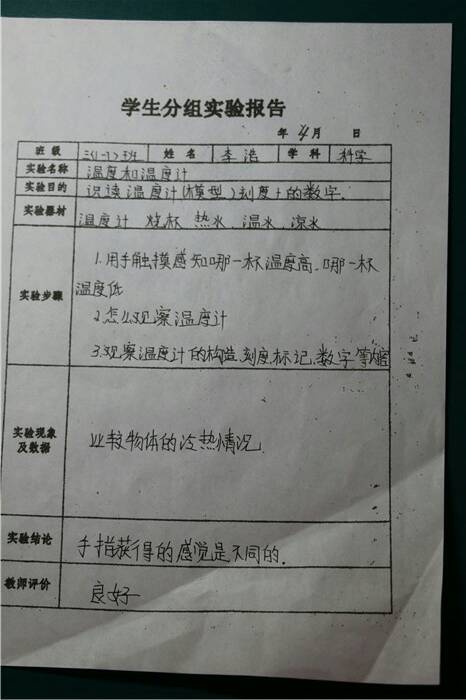 学生分组实验报告
年 4 月 日
班级 三(1)班 姓名 李浩 学科 科学
实验名称 温度和温度计
实验目的 识读温度计(模型)刻度上的数字.
实验器材 温度计 烧杯 热水 温水 凉水
实验步骤
1.用手触摸感知哪一杯温度高、哪一杯
温度低
2.怎么观察温度计
3.观察温度计的构造.刻度标记.数字等内容
实验现象及数据 比较物体的冷热情况.
实验结论 手指获得的感觉是不同的.
教师评价 良好